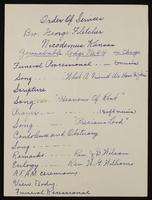 Order Of Services
Bro. George Fletcher
Nicodemus Kansas
Lodge No. 64 in Charge
Funeral Processional —
Song — "What A Friend We Have In Jesus"
Scripture
Song — "Heavens Of Rest"
Prayer —
Song — "Precious Lord"
Condolence and Obituary
Song
Remarks — Rev. J. B. Wilson
Eulogy — Rev. H. G. Williams
A.F.&A.M. Ceremony
View Body.
Funeral Recessional